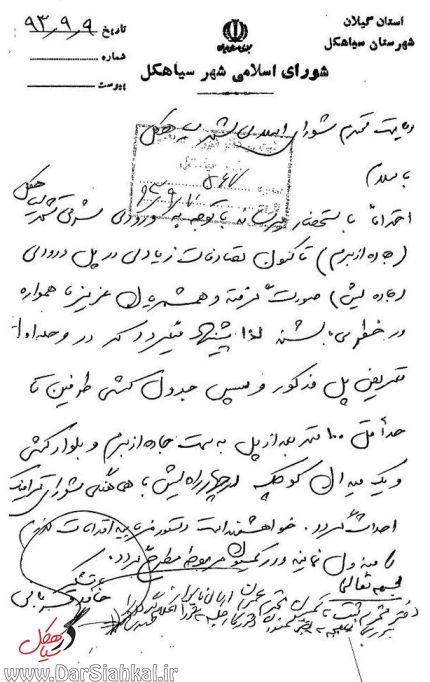 استان گیلان
شهرستان سیاهکل
شورای اسلامی شهر سیاهکل
تاریخ ۹۳،۹،۹
شماره
پیوست
ریاست محترم شورای اسلامی شهر سیاهکل
با سلام
احتراماً باستحضار میرساند با توجه به ورودی شرقی شهر سیاهکل
(جاده ازبرم) تاکنون تصادفات زیادی در پل ورودی
(جاده لیش) صورت گرفته و همشهریان عزیز ما همواره
در خطر می باشند لذا پیشنهاد میگردد که در وحله اول
تعریض پل مذکور و سپس جدول کشی طرفین تا
حداقل ۱۰۰ متر بعد از پل به سمت جاده ازبرم و بلوار کشی
و یک میدان کوچک در چهارراه لیش با هماهنگی شورای ترافیک
احداث گردد. خواهشمند است دستور فرمایید اقدامات لازم
را مبذول نمایند و در کمیسیون مربوطه مطرح گردد.
با تشکر
بسمه تعالی
دفتر محترم
سیاهکل
www.DarSiahkal.ir